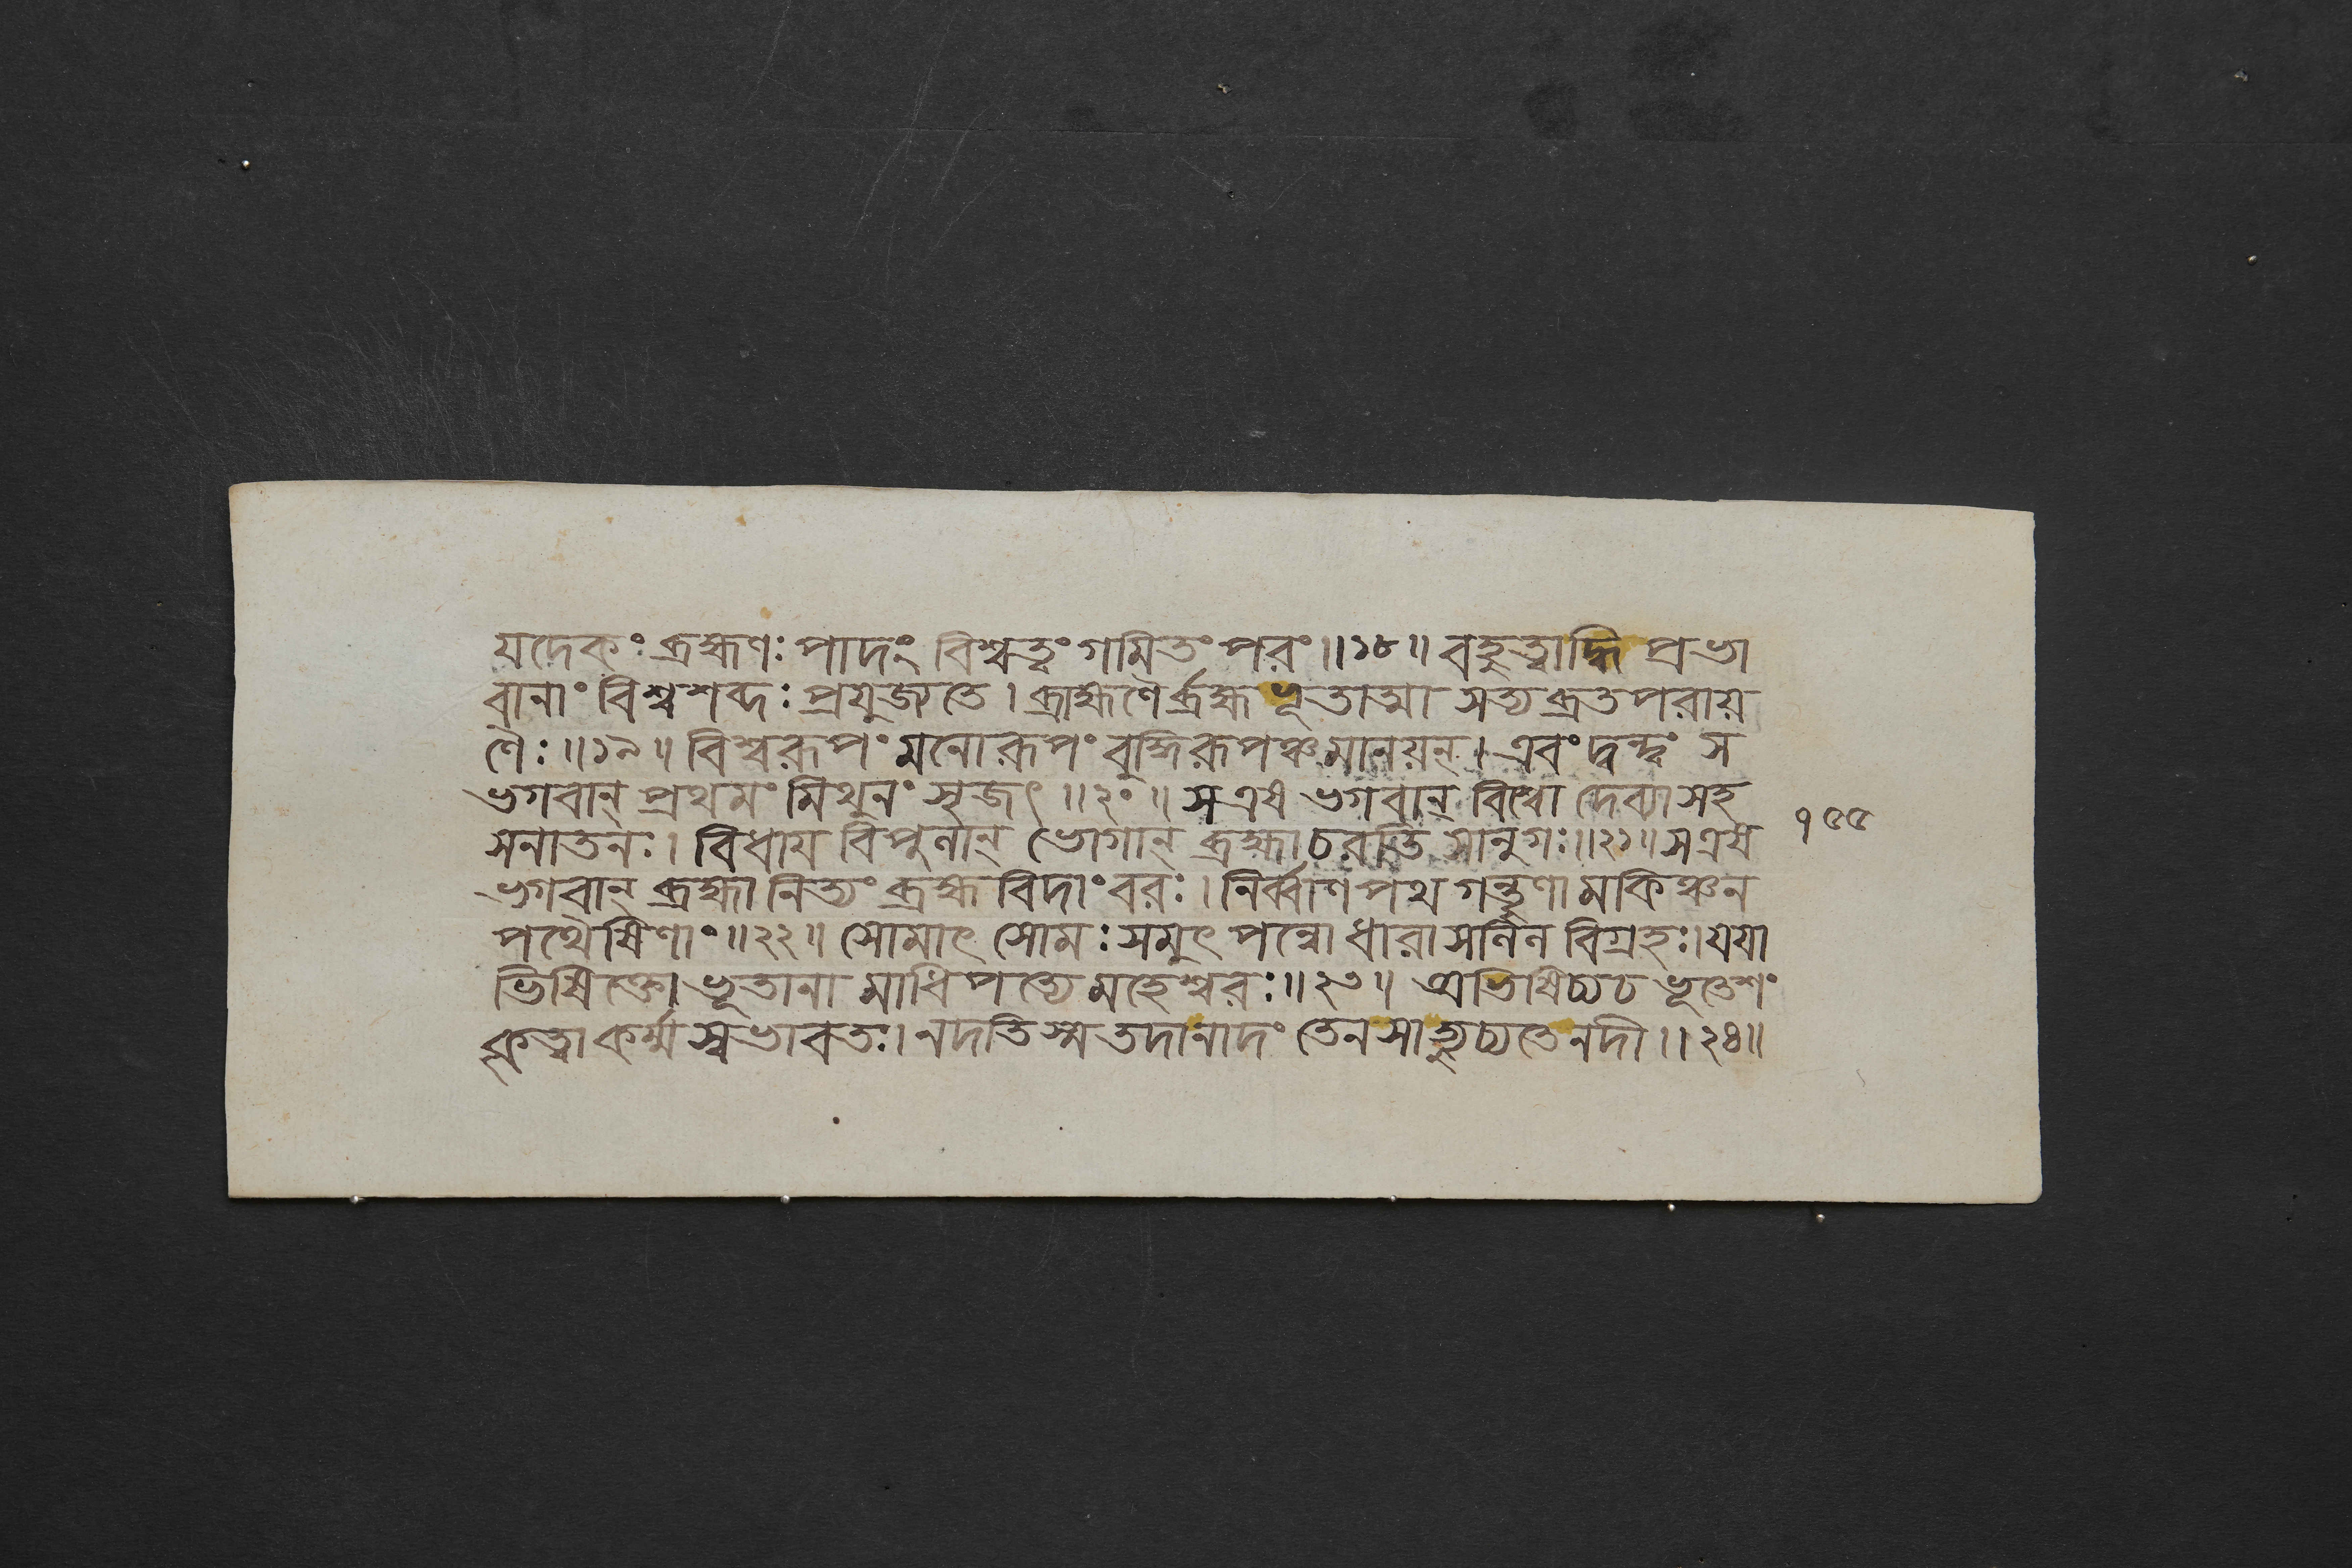 যদেকং ব্রহ্মণঃ পাদং বিশ্বত্বং গমিতং পরং ॥১৮॥ বহুত্বাদ্ধি প্রভা
বানাং বিশ্বশব্দঃ প্রযুজ্যতে । ব্রাহ্মণৈর্ব্রহ্মভূতাত্মা সত্যব্রতপরায়
ণৈঃ ॥১৯॥ বিশ্বরূপং মনোরূপং বুদ্ধিরূপঞ্চমানয়ন্ । এবং দ্বন্দ্বং স
ভগবান্ প্রথমং মিথুনং সৃজৎ ॥২০॥ সএষ ভগবান্ বিশ্বো দেব্যাসহ
সনাতনঃ । বিধায় বিপুলান্ ভোগান্ ব্রহ্মাচরতি সানুগঃ ॥২১॥ সএষ
ভগবান্ ব্রহ্মা নিত্যং ব্রহ্মবিদাংবরঃ । নির্ব্বাণপথ গন্তৄণামকিঞ্চন
পথৈষিণাং ॥২২॥ সোমাৎ সোমঃ সমুৎপন্নো ধারাসলিল বিগ্রহঃ । যযা
ভিষিক্তো ভূতানামাধিপত্যে মহেশ্বরঃ ॥২৩॥ অভিষিচ্যচ ভূতেশং
কৃত্বাকর্ম্ম স্বভাবতঃ । নদতিস্ম তদানাদং তেনসাহ্যুচ্যতেনদী ॥২৪॥
১৫৫